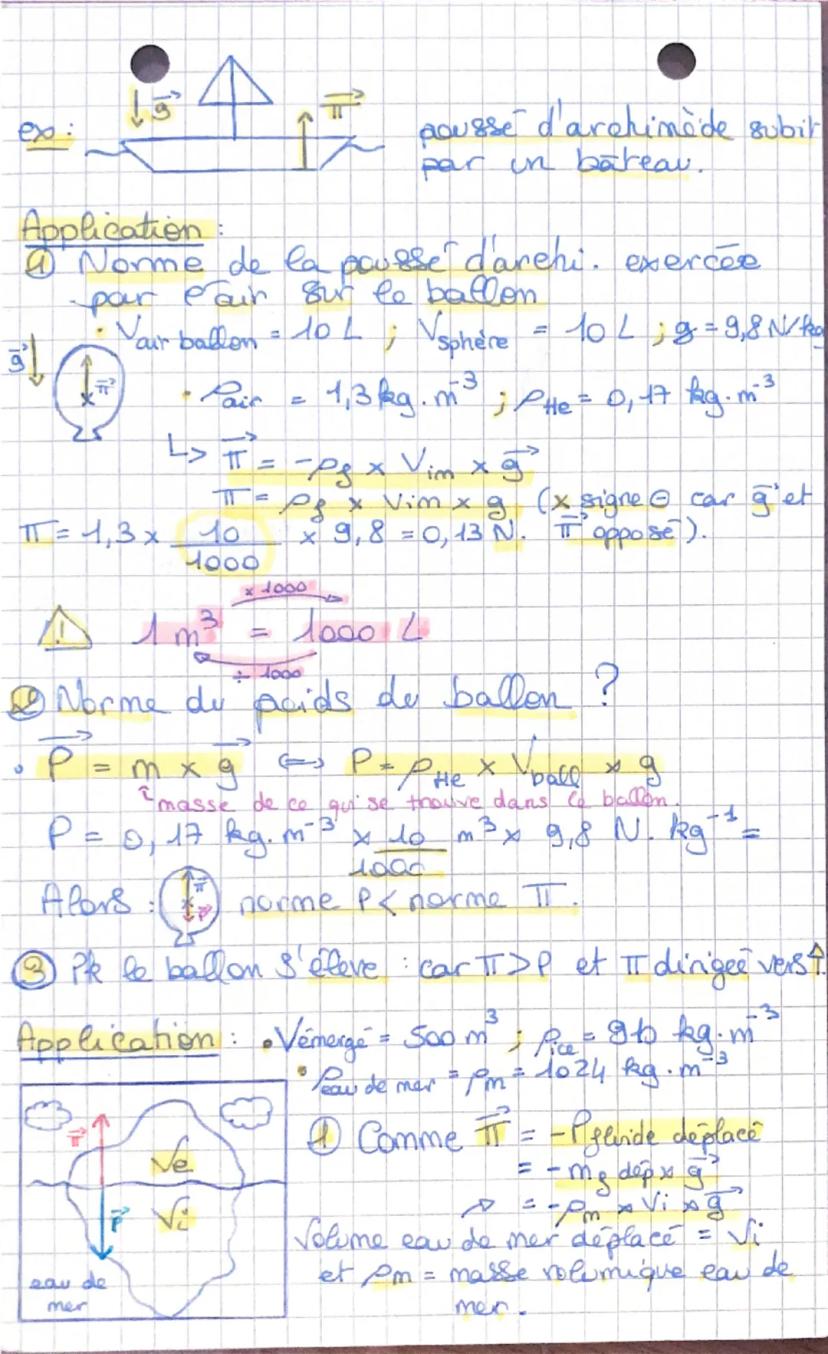 ex : g π poussé d'archimède subit
par un bâteau.
Application :
① Norme de la poussé d'archi. exercée
par l'air sur le ballon
• Vair ballon = 10 L ; Vsphère = 10 L ; g = 9,8 N/kg
g π • ρair = 1,3 kg.m⁻³ ; ρHe = 0,17 kg.m⁻³
↳ π = -ρf x Vim x g
π = ρf x Vim x g (x signe ⊖ car g et
π = 1,3 x 10/1000 x 9,8 = 0,13 N. π opposé).
x 1000
⚠ 1 m³ = 1000 L
÷ 1000
② Norme du poids du ballon ?
• P = m x g ⇔ P = ρHe x Vball x g
masse de ce qui se trouve dans le ballon.
P = 0,17 kg.m⁻³ x 10/1000 m³ x 9,8 N.kg⁻¹ =
Alors : π P norme P < norme π.
③ Pk le ballon s'élève : car π > P et π dirigée vers ↑
Application : • Vémergé = 500 m³ ; ρice = 910 kg.m⁻³
• ρeau de mer = ρm = 1024 kg.m⁻³
① Comme π = -Pfluide déplacé
π Ve = -mf dép x g
P Vi → = -ρm x Vi x g
Volume eau de mer déplacé = Vi
eau de et ρm = masse volumique eau de
mer mer.